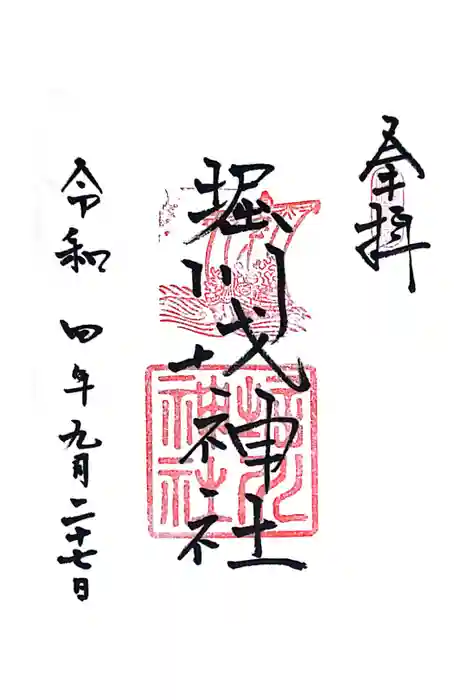 奉拝
堀川戎神社
令和四年九月二十七日